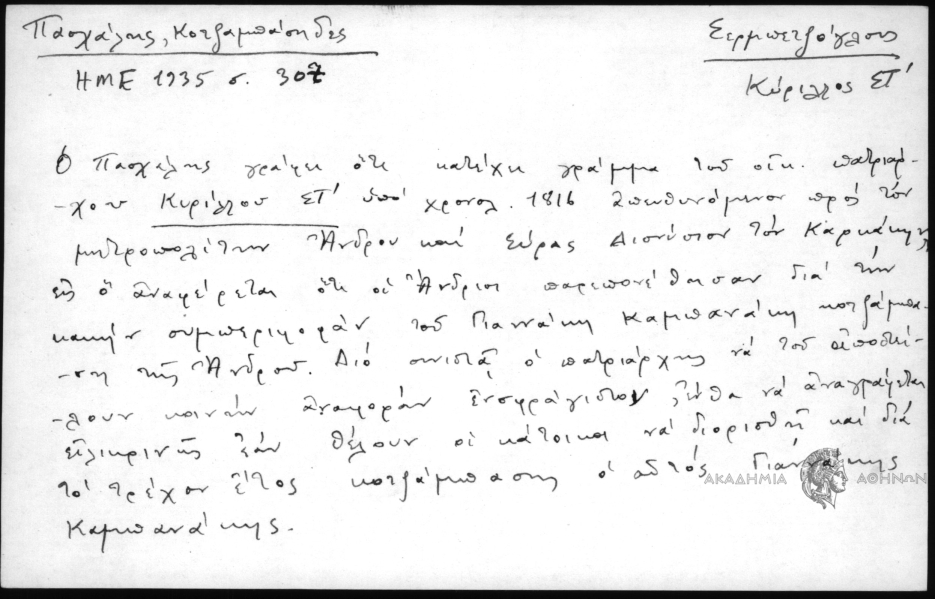 Πασχάλης, Κοτζαμπάσηδες
Σερμπετζόγλου
ΗΜΕ 1935 σ. 307
Κύριλλος ΣΤ'
Ὁ Πασχάλης γράφει ὅτι κατέχει γράμμα τοῦ οἰκ. πατριάρ-
-χου Κυρίλλου ΣΤ' ὑπό χρονολ. 1816 ἀπευθυνόμενον πρός τόν
μητροπολίτην Ἄνδρου καί Σύρας Διονύσιον τόν Καρκάκην
εἰς ὅ ἀναφέρεται ὅτι οἱ Ἄνδριοι παρεπονέθησαν διά τήν
κακήν συμπεριφοράν τοῦ Γιαννάκη Καμπανάκη κοτζάμπα-
-ση τῆς Ἄνδρου. Διό συνιστᾶ ὁ πατριάρχης νά τοῦ ἀποστεί-
-λουν κοινήν ἀναφοράν ἐνσφράγιστον ἔνθα νά ἀναγράφεται
εἰλικρινῆς ἐάν θέλουν οἱ κάτοικοι νά διορισθῆ καί διά
τό τρέχον ἔτος κοτζάμπασης ὁ αὐτός Γιαννάκης
Καμπανάκης.
ΑΚΑΔΗΜΙΑ ΑΘΗΝΩΝ